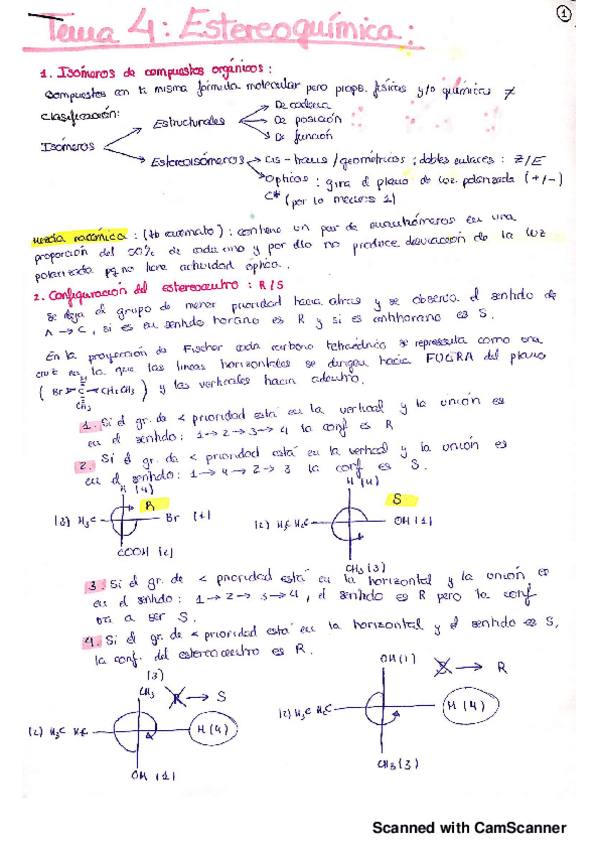 1
Tema 4: Estereoquímica:
1. Isómeros de compuestos orgánicos:
Compuestos con la misma fórmula molecular pero props. físicas y/o químicas ≠
Clasificación:
De cadena
Estructurales De posición
De función
Isómeros
Estereoisómeros cis-trans/geométricos: dobles enlaces: Z/E
Ópticos: gira el plano de luz polarizada (+/-)
C* (por lo menos 1)
Mezcla racémica: (tb racemato): contiene un par de enantiómeros en una
proporción del 50% de cada uno y por ello no produce desviación de la luz
polarizada pq no tiene actividad óptica.
2. Configuración del estereocentro: R/S
Se deja el grupo de menor prioridad hacia atras y se observa el sentido de
A → C, si es en sentido horario es R y si es antihorario es S.
En la proyección de Fischer cada carbono tetraédrico se representa como una
cruz en la que las lineas horizontales se dirigen hacia FUERA del plano
( Br C CH2CH3 ) y las verticales hacia adentro.
CH3
1. Si el gr. de < prioridad está en la vertical y la unión es
en el sentido: 1→2→3→4 la conf es R
2. Si el gr. de < prioridad está en la vertical y la unión es
en el sentido: 1→4→2→3 la conf es S.
H (4) R
(3) H3C Br (1)
COOH (2)
H (4) S
(2) OH (1)
CH3 (3)
3. Si el gr. de < prioridad está en la horizontal y la unión es
en el sentido: 1→2→3→4, el sentido es R pero la conf
va a ser S.
4. Si el gr. de < prioridad está en la horizontal y el sentido es S,
la conf. del estereocentro es R.
(3)
CH3 R → S
(2) H3C H (4)
OH (1)
OH (1) S → R
(2) H3C H2C H (4)
CH3 (3)
Scanned with CamScanner